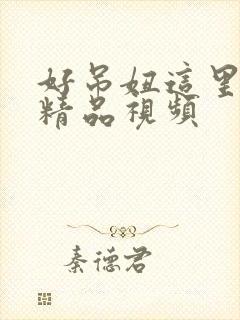 好吊妞這里
精品視頻
秦德君